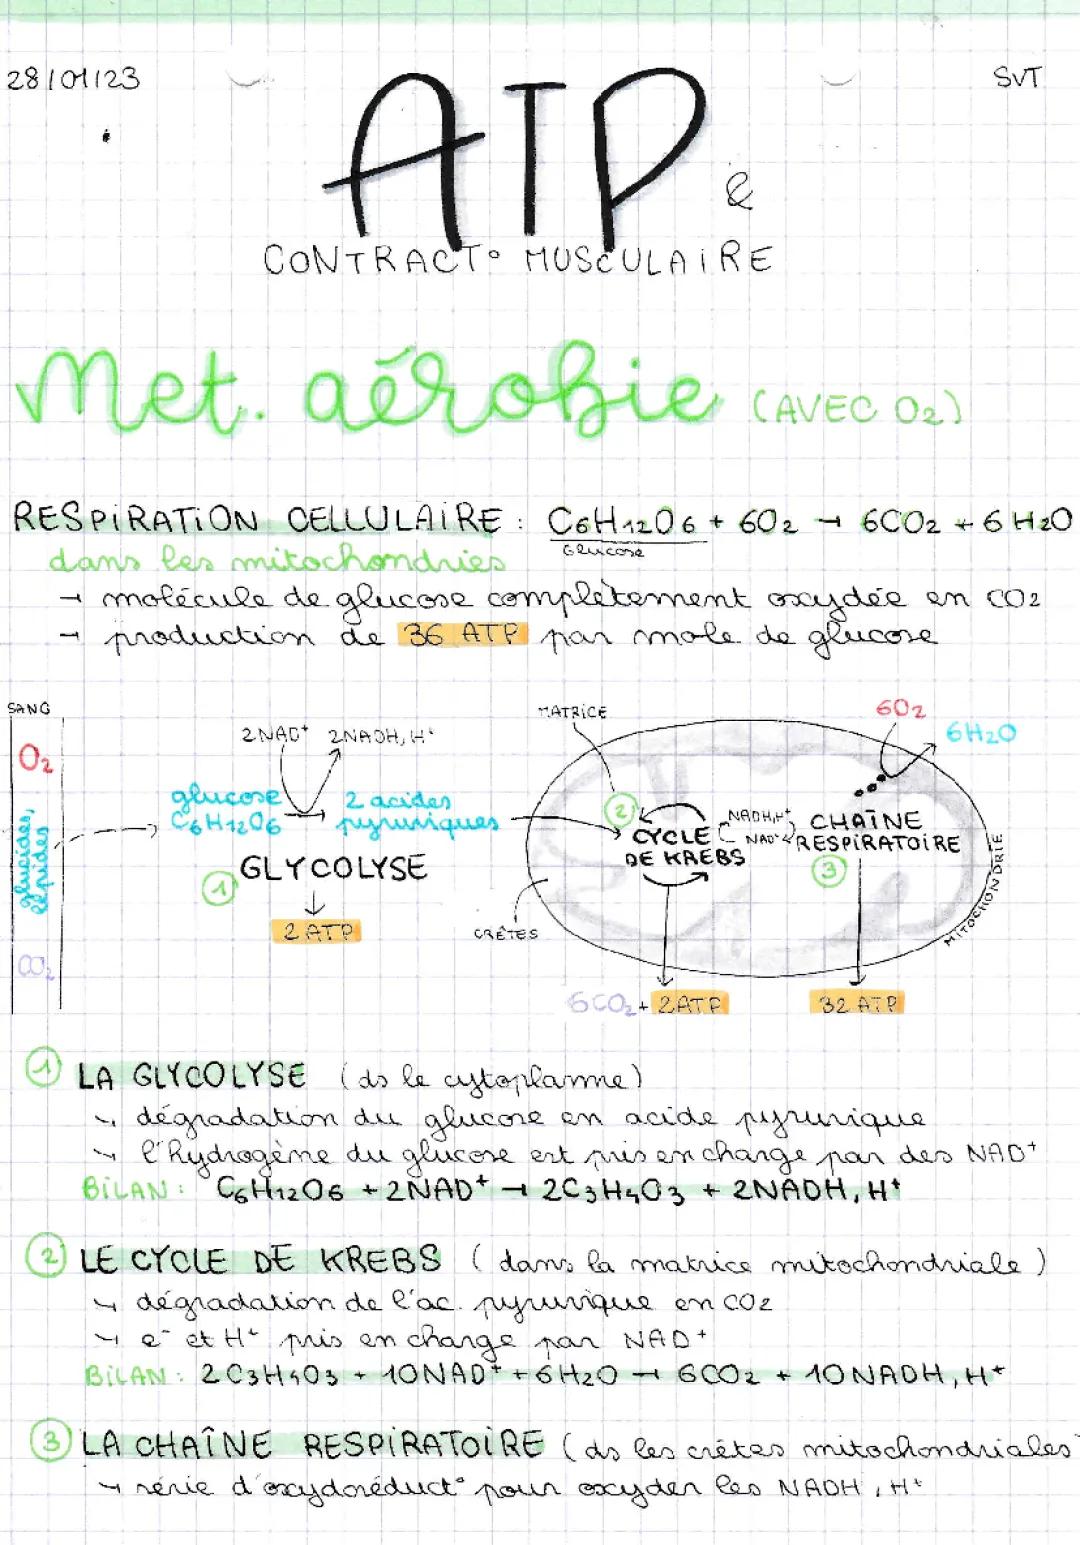 28/01/23
SVT
ATP &
CONTRACT° MUSCULAIRE
Met. aérobie (AVEC O2)
RESPIRATION CELLULAIRE : C6H12O6 + 6O2 → 6CO2 + 6H2O
Glucose
dans les mitochondries
→ molécule de glucose complètement oxydée en CO2
→ production de 36 ATP par mole de glucose
SANG
O2
glucides, lipides
CO2
2NAD+ 2NADH, H+
glucose
C6H12O6
2 acides
pyruviques
1 GLYCOLYSE
2 ATP
MATRICE
CRÊTES
2
CYCLE
DE KREBS
NADH,H+
NAD+
CHAÎNE
RESPIRATOIRE
3
6O2
6H2O
MITOCHONDRIE
6CO2 + 2ATP
32 ATP
1 LA GLYCOLYSE (ds le cytoplasme)
↳ dégradation du glucose en acide pyruvique
↳ l'hydrogène du glucose est pris en charge par des NAD+
BILAN : C6H12O6 + 2NAD+ → 2C3H4O3 + 2NADH, H+
2 LE CYCLE DE KREBS (dans la matrice mitochondriale)
↳ dégradation de l'ac. pyruvique en CO2
↳ e- et H+ pris en charge par NAD+
BILAN : 2C3H4O3 + 10NAD+ + 6H2O → 6CO2 + 10NADH, H+
3 LA CHAÎNE RESPIRATOIRE (ds les crêtes mitochondriales
↳ série d'oxydoréduct° pour oxyder les NADH, H+